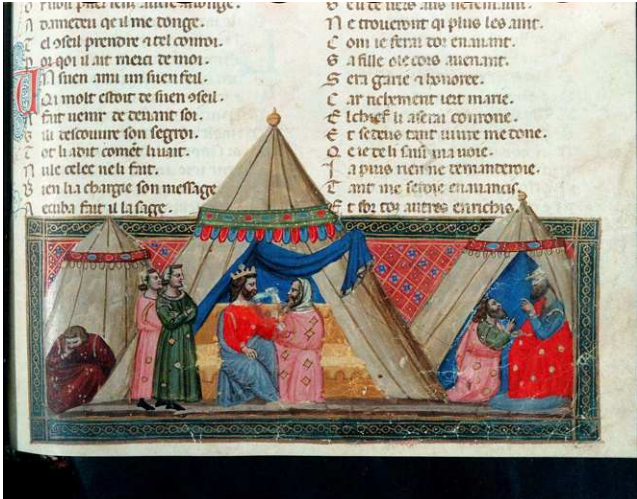 A damedeu qe il me donge.
T el 9seil prendre ⁊ tel conroi.
P or qoi il ait merci de moi.
U n suen ami un suen feil.
Qi molt estoit de suen 9seil.
A fait uenir de deuant soi.
S ili descouure son segroi.
T ot li a dit comēt li uait.
N ule celee ne li fait.
B ien li a chargie son message
A ecuba fait il la sage.
N e troueront qi plus les aint.
C om ie ferai dor en auant.
S a fille o le cors auenant.
S era garie ⁊ honoree.
C ar richement iert marie.
E l chief li aserai corone.
E t se deus tant uiure me done.
Q e ie de li ma uoie.
I a puis rien ne demanderoie.
T ant me seroie enauancis.
E t sor toz autres enrichis.